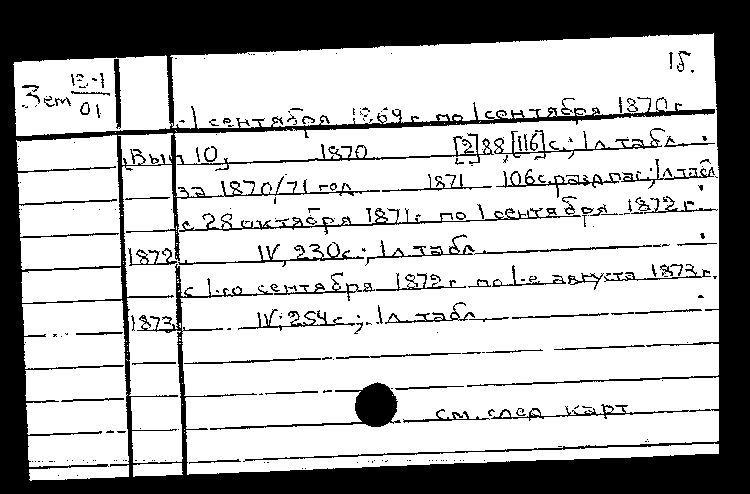 1б.
Зем 13-1
01
с 1 сентября 1869 г. по 1 сентября 1870 г.
(Вып 10) 1870 [2] 88, [116] с.; 1 л. табл.
за 1870/71 год 1871 106 с. разд паг.; 1 л табл
с 28 октября 1871 г. по 1 сентября 1872 г.
1872. IV, 230 с.; 1 л. табл.
с 1-го сентября 1872 г. по 1-е августа 1873 г.
1873. IV; 254 с.; 1 л. табл.
см. след карт